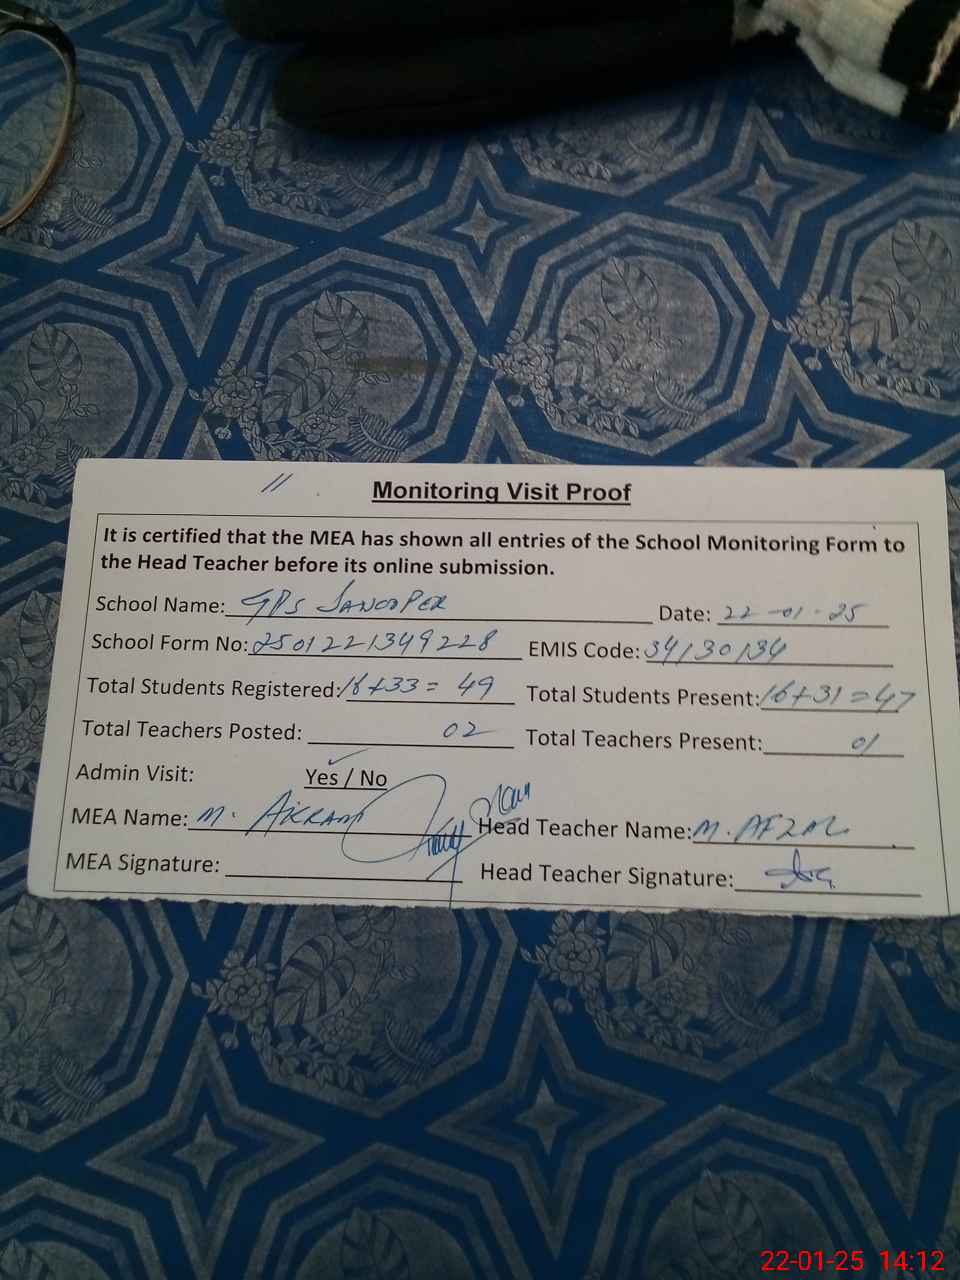 11
Monitoring Visit Proof
It is certified that the MEA has shown all entries of the School Monitoring Form to
the Head Teacher before its online submission.
School Name: GPS Date: 22-01-25
School Form No: 2501221349228 EMIS Code: 34130134
Total Students Registered: 16+33 = 49 Total Students Present: 16+31=47
Total Teachers Posted: 02 Total Teachers Present: 01
Admin Visit: Yes / No
MEA Name: M. AKRAM Head Teacher Name: M. AFZAL
MEA Signature: Head Teacher Signature:
22-01-25 14:12